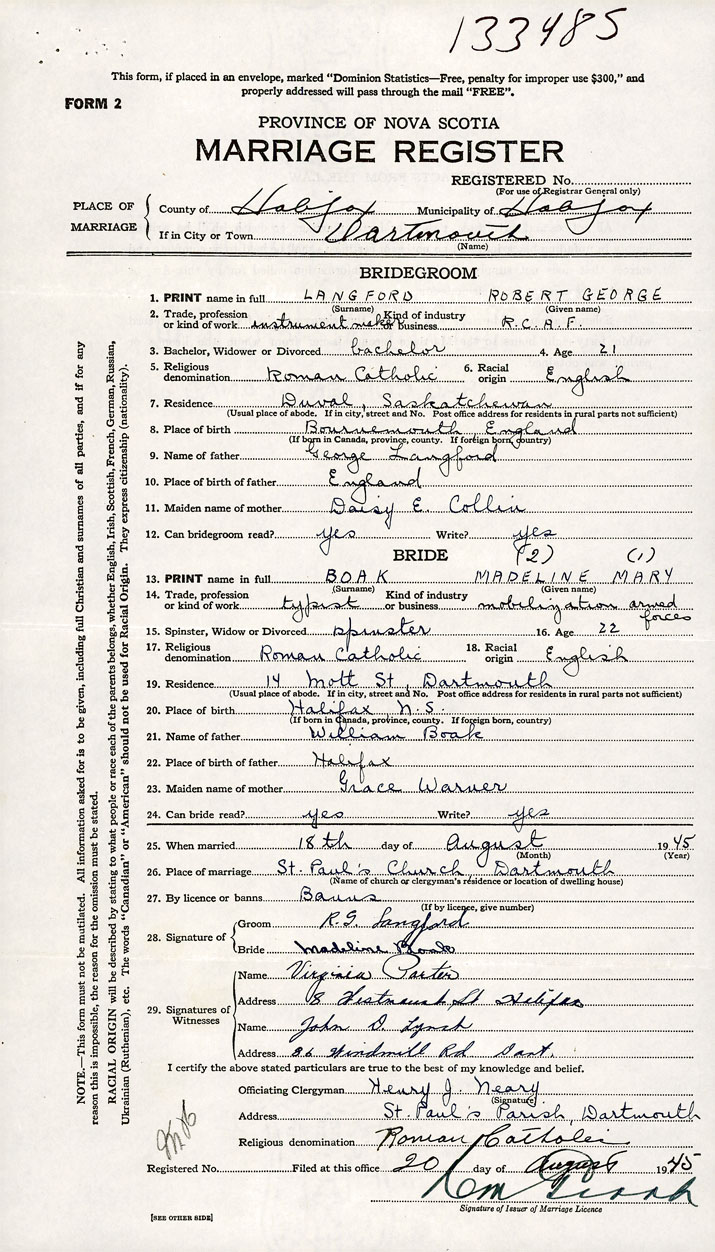 133485
This form, if placed in an envelope, marked “Dominion Statistics—Free, penalty for improper use $300,” and
properly addressed will pass through the mail “FREE”.
FORM 2
PROVINCE OF NOVA SCOTIA
MARRIAGE REGISTER
REGISTERED No.
(For use of Registrar General only)
PLACE OF MARRIAGE
County of Halifax Municipality of Halifax
If in City or Town Dartmouth
(Name)
BRIDEGROOM
1. PRINT name in full LANGFORD ROBERT GEORGE
(Surname) (Given name)
2. Trade, profession or kind of work instrument maker Kind of industry or business R.C.A.F.
3. Bachelor, Widower or Divorced bachelor 4. Age 21
5. Religious denomination Roman Catholic 6. Racial origin English
7. Residence Duval, Saskatchewan
(Usual place of abode. If in city, street and No. Post office address for residents in rural parts not sufficient)
8. Place of birth Bournemouth England
(If born in Canada, province, county. If foreign born, country)
9. Name of father George Langford
10. Place of birth of father England
11. Maiden name of mother Daisy E. Collin
12. Can bridegroom read? yes Write? yes
BRIDE (2) (1)
13. PRINT name in full BOAK MADELINE MARY
(Surname) (Given name)
14. Trade, profession or kind of work typist Kind of industry or business mobilization armed forces
15. Spinster, Widow or Divorced spinster 16. Age 22
17. Religious denomination Roman Catholic 18. Racial origin English
19. Residence 14 Mott St, Dartmouth
(Usual place of abode. If in city, street and No. Post office address for residents in rural parts not sufficient)
20. Place of birth Halifax N.S.
(If born in Canada, province, county. If foreign born, country)
21. Name of father William Boak
22. Place of birth of father Halifax
23. Maiden name of mother Grace Warner
24. Can bride read? yes Write? yes
25. When married 18th day of August 1945
(Month) (Year)
26. Place of marriage St. Paul's Church, Dartmouth
(Name of church or clergyman's residence or location of dwelling house)
27. By licence or banns Banns
(If by licence, give number)
28. Signature of Groom R.G. Langford
Bride Madeline Boak
29. Signatures of Witnesses
Name Virginia Porter
Address 8 St Halifax
Name John D. Lynch
Address 86 Windmill Rd Dart.
I certify the above stated particulars are true to the best of my knowledge and belief.
Officiating Clergyman Henry J. Neary
(Signature)
Address St. Paul's Parish, Dartmouth
Religious denomination Roman Catholic
Registered No. Filed at this office 20 day of August 1945
Signature of Issuer of Marriage Licence
[SEE OTHER SIDE]
NOTE.—This form must not be mutilated. All information asked for is to be given, including full Christian and surnames of all parties, and if for any
reason this is impossible, the reason for the omission must be stated.
RACIAL ORIGIN will be described by stating to what people or race each of the parents belongs, whether English, Irish, Scottish, French, German, Russian,
Ukrainian (Ruthenian), etc. The words “Canadian” or “American” should not be used for Racial Origin. They express citizenship (nationality).